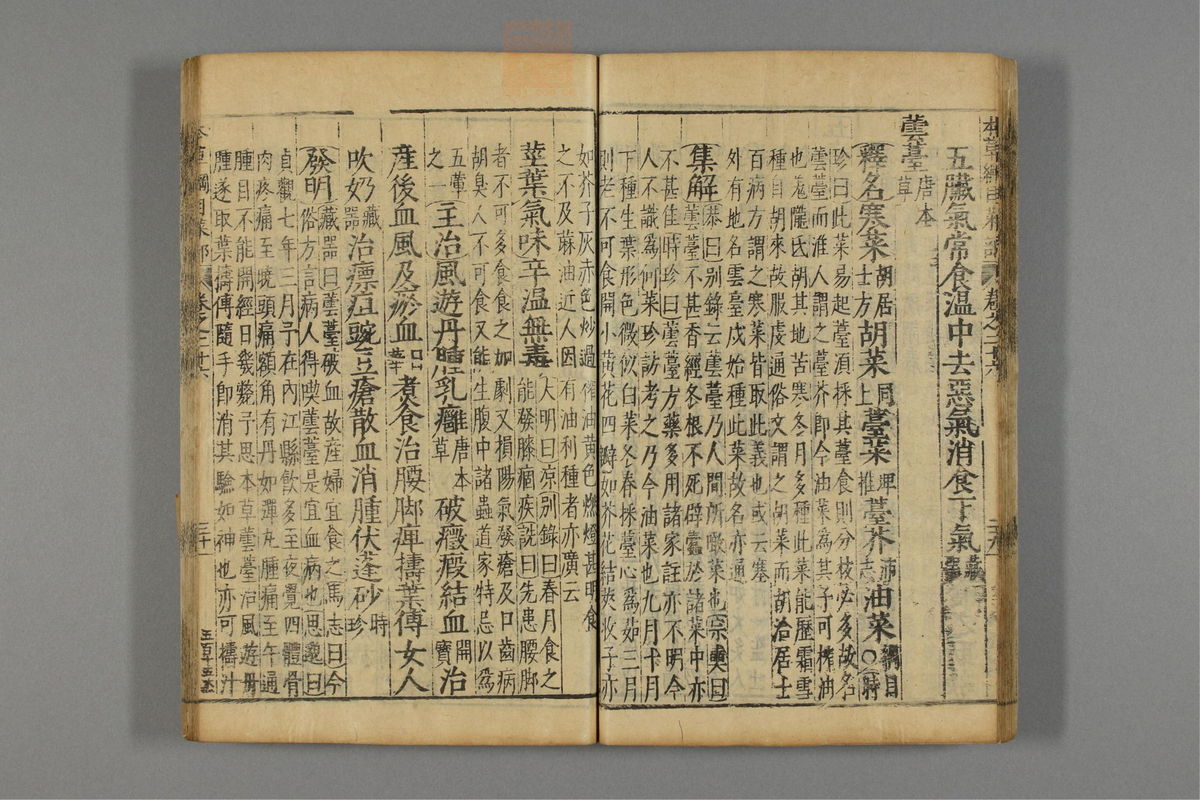 五臟氣常食温中去惡氣消食下氣
蕓薹唐本草
釋名寒菜胡居士方胡菜同上薹菜埤雅薹芥沛志油菜綱目○時
珍曰此菜易起薹須採其薹食則分枝必多故名
蕓薹而淮人謂之薹芥即今油菜爲其子可榨油
也羗隴氐胡其地苦寒冬月多種此菜能歷霜雪
種自胡來故服虔通俗文謂之胡菜而胡洽居士
百病方謂之寒菜皆取此義也或云塞
外有地名雲臺戍始種此菜故名亦通
集解恭曰别錄云蕓薹乃人間所噉菜也宗奭曰
蕓薹不甚香經冬根不死辟蠹於諸菜中亦
不甚佳時珍曰蕓薹方藥多用諸家註亦不明今
人不識爲何菜珍訪考之乃今油菜也九月十月
下種生葉形色微似白菜冬春採薹心爲茹三月
則老不可食開小黄花四瓣如芥花結莢收子亦
如芥子灰赤色炒過榨油黄色燃燈甚明食
之不及麻油近人因有油利種者亦廣云
莖葉氣味辛温無毒大明曰凉别錄曰春月食之
能發膝痼疾詵曰先患腰脚
者不可多食食之加劇又損陽氣發瘡及口齒病
胡臭人不可食又能生腹中諸蟲道家特忌以爲
五葷之一
主治風遊丹腫乳癰唐本草破癥瘕結血開寶治
産後血風及瘀血日華煮食治腰脚痺擣葉傅女人
吹奶藏器治瘭疽豌豆瘡散血消腫伏蓬砂時珍
發明藏器曰蕓薹破血故産婦宜食之馬志曰今
俗方言病人得喫蕓薹是宜血病也思邈曰
貞觀七年三月予在内江縣飲多至夜覺四體骨
肉疼痛至曉頭痛額角有丹如彈丸腫痛至午通
腫目不能開經日幾斃予思本草蕓薹治風遊丹
腫遂取葉擣傅隨手即消其驗如神也亦可擣汁